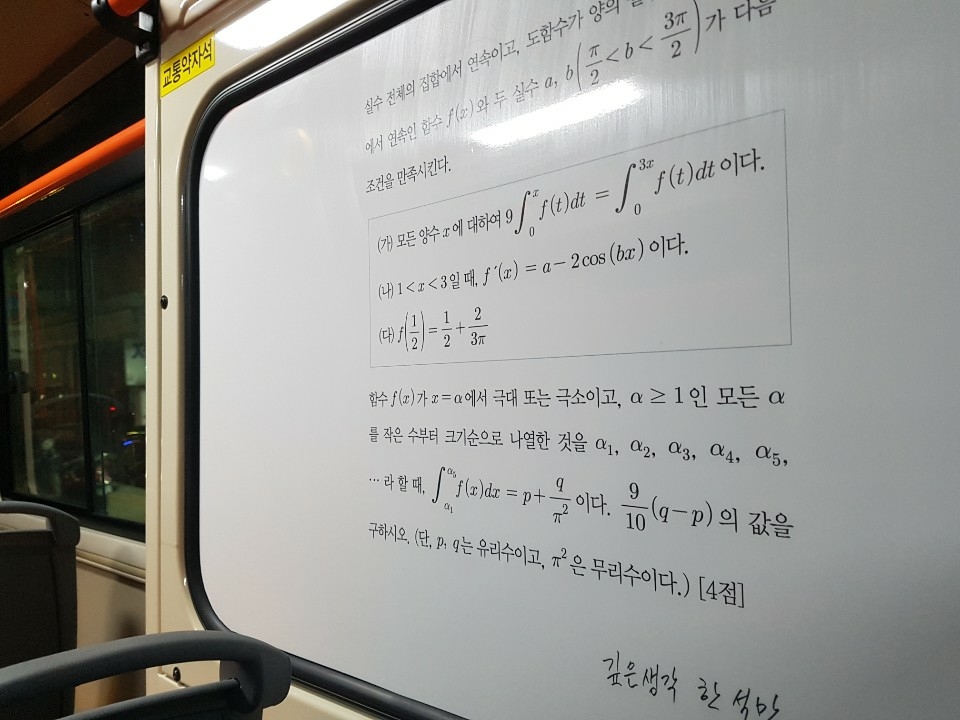 교통약자석
실수 전체의 집합에서 연속이고, 도함수가 양의
에서 연속인 함수 f(x)와 두 실수 a, b(π/2 < b < 3π/2)가 다음
조건을 만족시킨다.
(가) 모든 양수 x에 대하여 9∫₀ˣ f(t)dt = ∫₀³ˣ f(t)dt 이다.
(나) 1 < x < 3일 때, f′(x) = a − 2cos(bx)이다.
(다) f(1/2) = 1/2 + 2/3π
함수 f(x)가 x = α에서 극대 또는 극소이고, α ≥ 1인 모든 α
를 작은 수부터 크기순으로 나열한 것을 α₁, α₂, α₃, α₄, α₅,
⋯라 할 때, ∫_{α₁}^{α₅} f(x)dx = p + q/π² 이다. 9/10(q−p)의 값을
구하시오. (단, p, q는 유리수이고, π²은 무리수이다.) [4점]
깊은생각 한석만